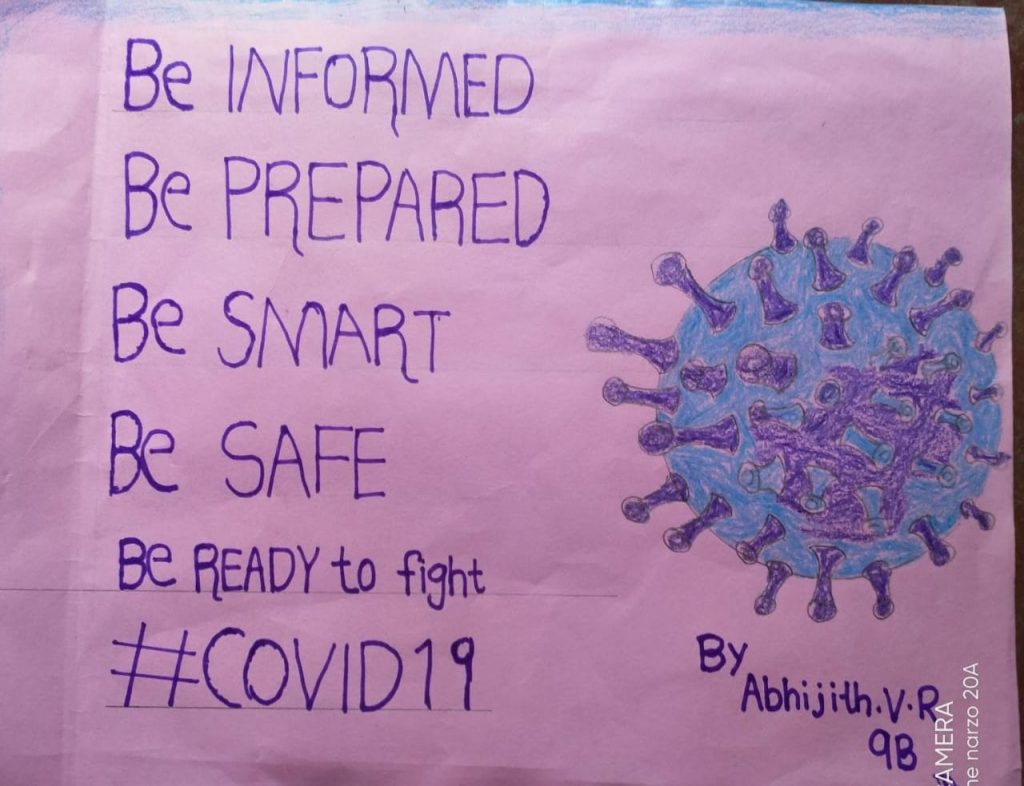 Be INFORMED
Be PREPARED
Be SMART
Be SAFE
Be READY to fight
#COVID19
By
Abhijith.V.R
9B
AMERA
narzo 20A